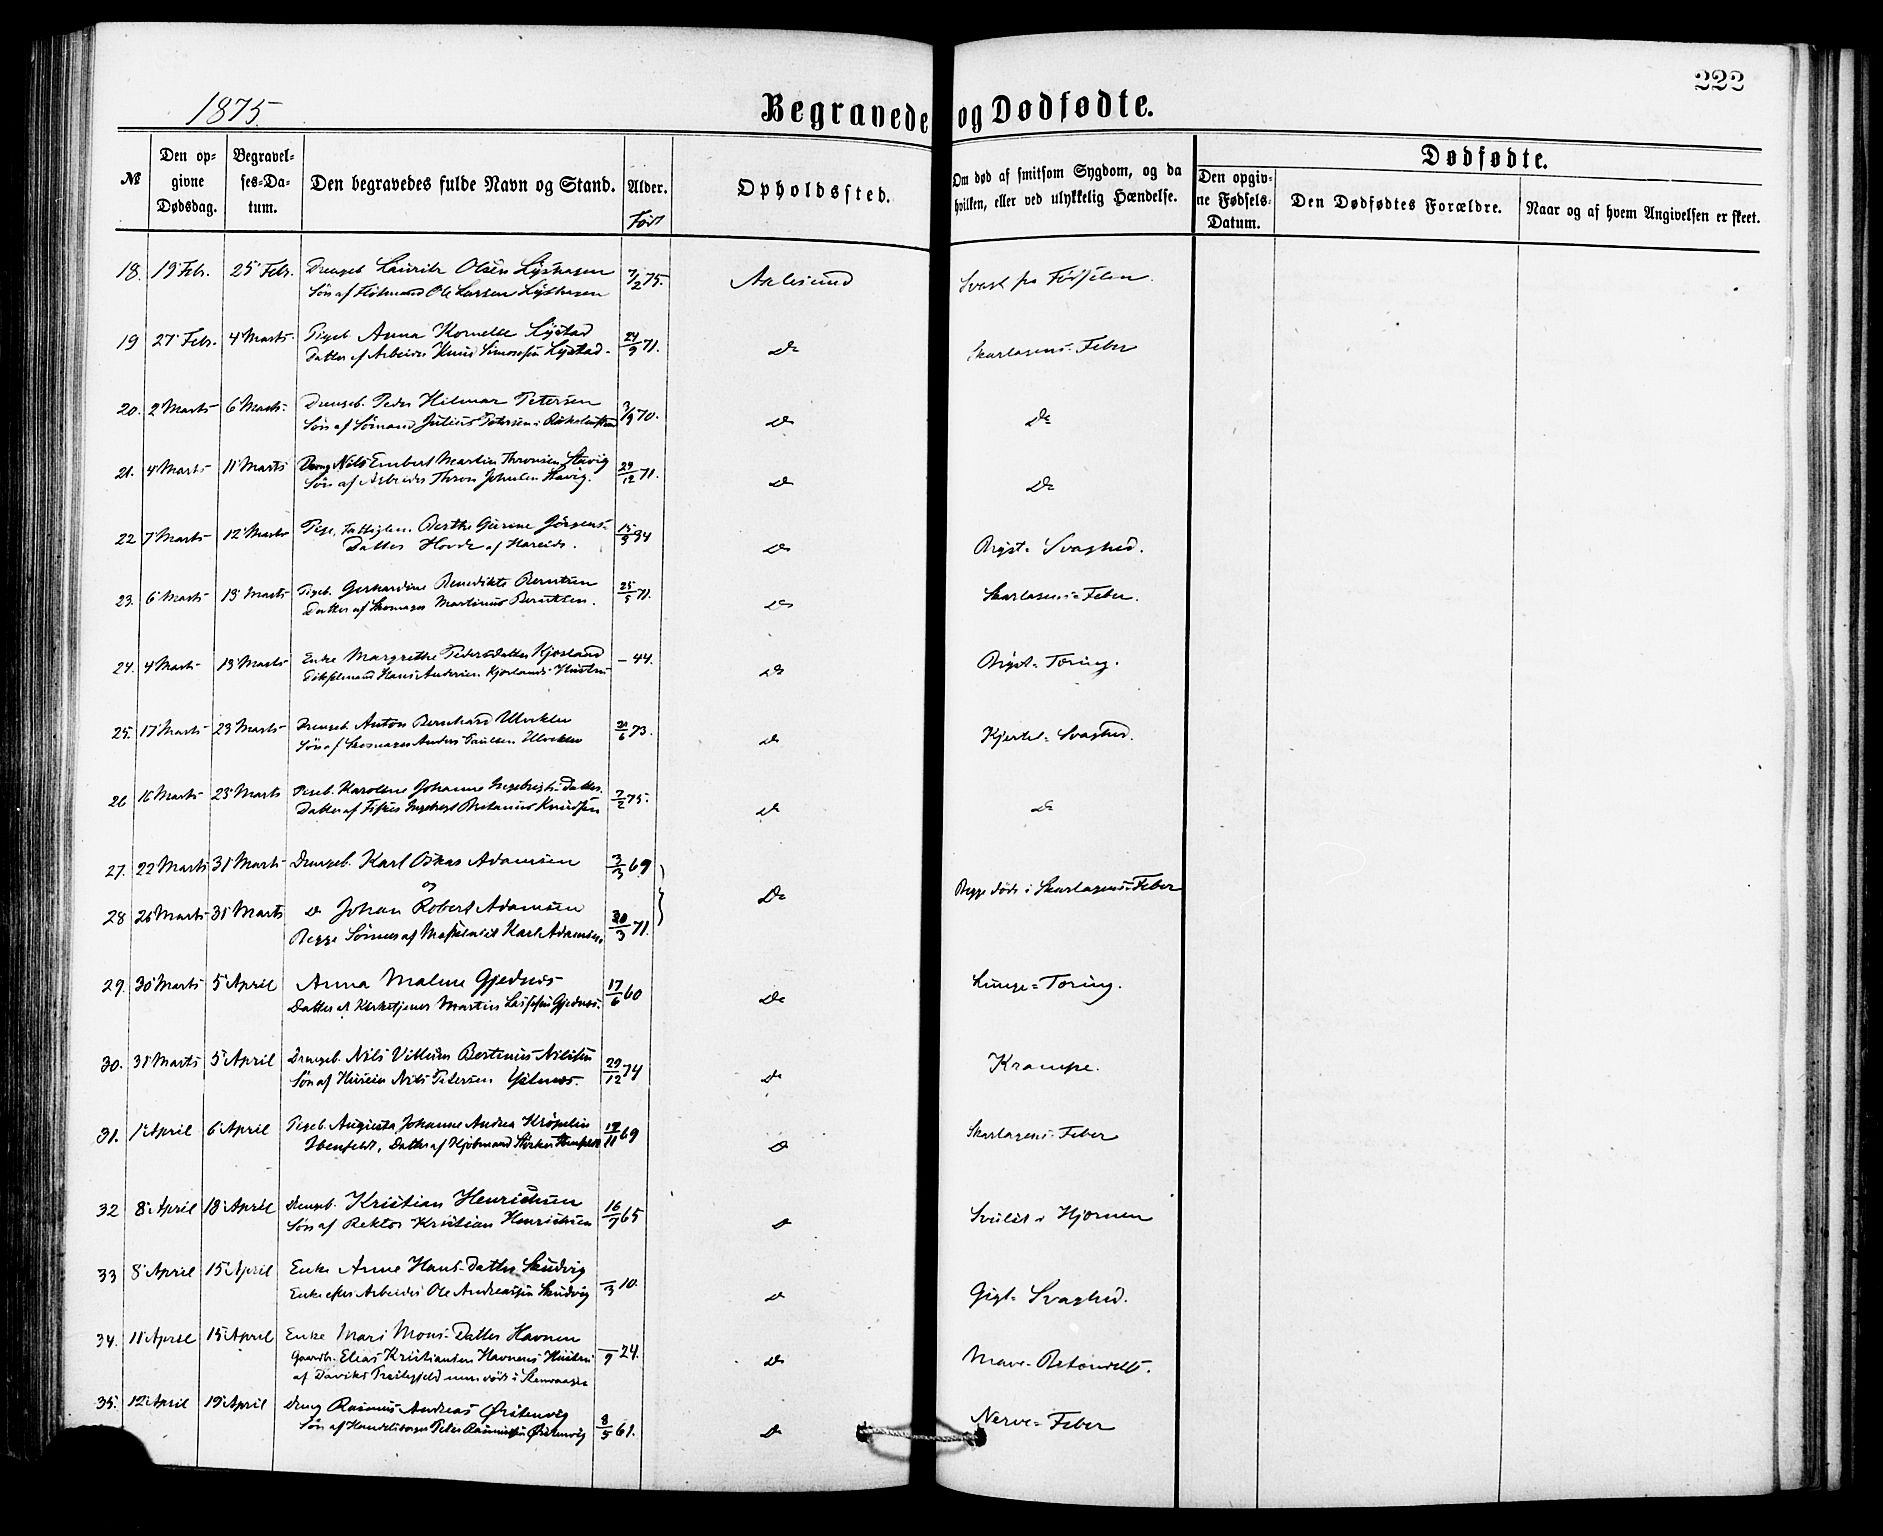 222
1875.
Begravede og Dødfødte.
№
Den opgivne Dødsdag.
Begravelses-Datum.
Den begravedes fulde Navn og Stand.
Alder.
Født
Opholdssted.
Om død af smitsom Sygdom, og da hvilken, eller ved ulykkelig Hændelse.
Dødfødte.
Den opgivne Fødsels-Datum.
Den Dødfødtes Forældre.
Naar og af hvem Angivelsen er skeet.
18. 19 Feb. 25 Febr. Drengeb. Laurits Olsen Lyshagen 7/2 75. Aalesund Svag fra Fødselen.
Søn af Ole Larsen Lyshagen
19 27 Feb. 4 Marts Pigeb. Anna Kornelie Lystad 24/9 71. Do Skarlagens-Feber
Datter af Arbeider Knud Simonsen Lystad.
20. 2 Marts 6 Marts Drengeb. Peder Hilmar Petersen 3/9 70. Do Do
Søn af Sømand Julius Petersen
21. 4 Marts 11 Marts Dreng Nils Embert Martin Thronsen Havig 29/12 71. Do Do
Søn af Arbeider Thron Johnsen Havig.
22 7 Marts 12 Marts Pige, Fattiglem. Berthe Gurine Jörgens- 15/3 94 Do Bryst-Svaghed.
Datter Hovde af Hareid.
23. 6 Marts 13 Marts Pigeb. Gerhardine Benedikte Berntsen 25/5 71. Do Skarlagens-Feber.
Datter af Skomager Martinus Berntsen.
24. 4 Marts 13 Marts Enke Margrethe Pedersdatter Kjosland - 44. Do Bryst-Tæring.
Hans Andersen Kjoslands Hustru
25. 17 Marts 23 Marts Drengeb. Anton Bernhard Ulveklev /6 73. Do Kjertel-Svaghed.
Søn af Skomager Anders Paulsen Ulveklev
26 16 Marts 23 Marts Pigeb. Karoline Johanne Ingebrigts-Datter. 7/2 75. Do Do
Datter af Fisker Ingebrigt Knudsen
27. 22 Marts 31 Marts Drengeb. Karl Oskar Adamsen 3/3 69 Do Begge døde i Skarlagens-Feber
og
28 26 Marts 31 Marts Do Johan Robert Adamsen 30/3 71.
Begge Sønner af Karl Adamsen.
29. 30 Marts 5 April Anna Maline Gjednæs 17/6 60 Do Lunge-Tæring.
Datter af Kirketjener Martin Gjednæs.
30. 31 Marts 5 April Drengeb. Nils Vilhelm Bertinus Nilsen 29/12 74 Do Krampe.
Søn af Nils Petersen
31. 1 April 6 April Pigeb. Augusta Johanne Andrea Kröpelin 19/11 69 Do Skarlagens-Feber
Ibenfeldt, Datter af Kjøbmand
32 8 April 18 April Drengeb. Kristian Henrichsen 16/7 65 Do Svulst i Hjernen
Søn af Rektor Kristian Henrichsen
33 8 April 15 April Enke Anne Hans-Datter Skudvig /3 10. Do Gigt-Svaghed.
Enke efter Arbeider Ole Andreassen Skudvig
34. 11 April 15 April Enke Mari Mons-Datter Havnen /9 24. Do Mave-Betændelse.
Gaardbr. Elias Kristiansen Havnens Hustru
af Daviks Præstegjeld
35. 12 April 19 April Dreng Rasmus Andreas Ørstenvig 8/5 61. Do Nerve-Feber
Søn af Handelsborger Peter Rasmussen Ørstenvig